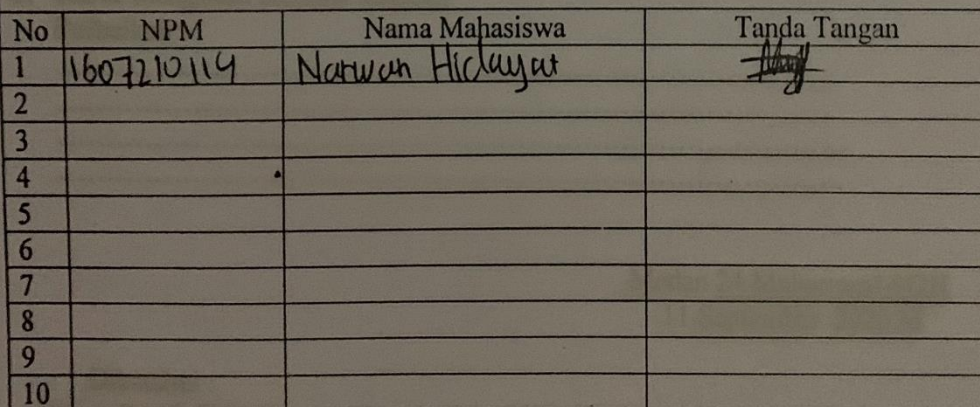 No NPM Nama Mahasiswa Tanda Tangan
1 1607210114 Narwan Hidayat
2
3
4
5
6
7
8
9
10